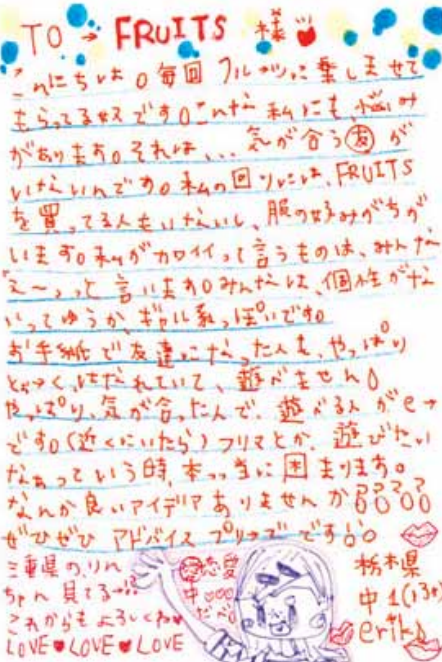 TO → FRUITS 様
こんにちは。毎回フルーツに乗しませて
もらってる奴です。こんな私にも、悩み
があります。それは...気が合う友が
いないんです。私の回りには、FRUITS
を買ってる人もいないし、服の好みがちが
います。私がカワイイって言うものは、みんな
え〜っと言います。みんなは、個性がな
いってゆうか、ギャル系っぽいです。
お手紙で友達になった人も、やっぱり
とおくはなれていて、遊べません。
やっぱり、気が合った人で、遊べる人がe→
です。(近くにいたら)フリマとか、遊びたい
なあっていう時、本っ当に困まります。
なんか良いアイデアありませんか???
ぜひぜひアドバイスプリーズです!!。
三重県の、りん
ちゃん見てる→!?
これからもよろしくね
LOVE♥LOVE♥LOVE
恋愛
中
だべ
栃木県
中1(13才)
erika